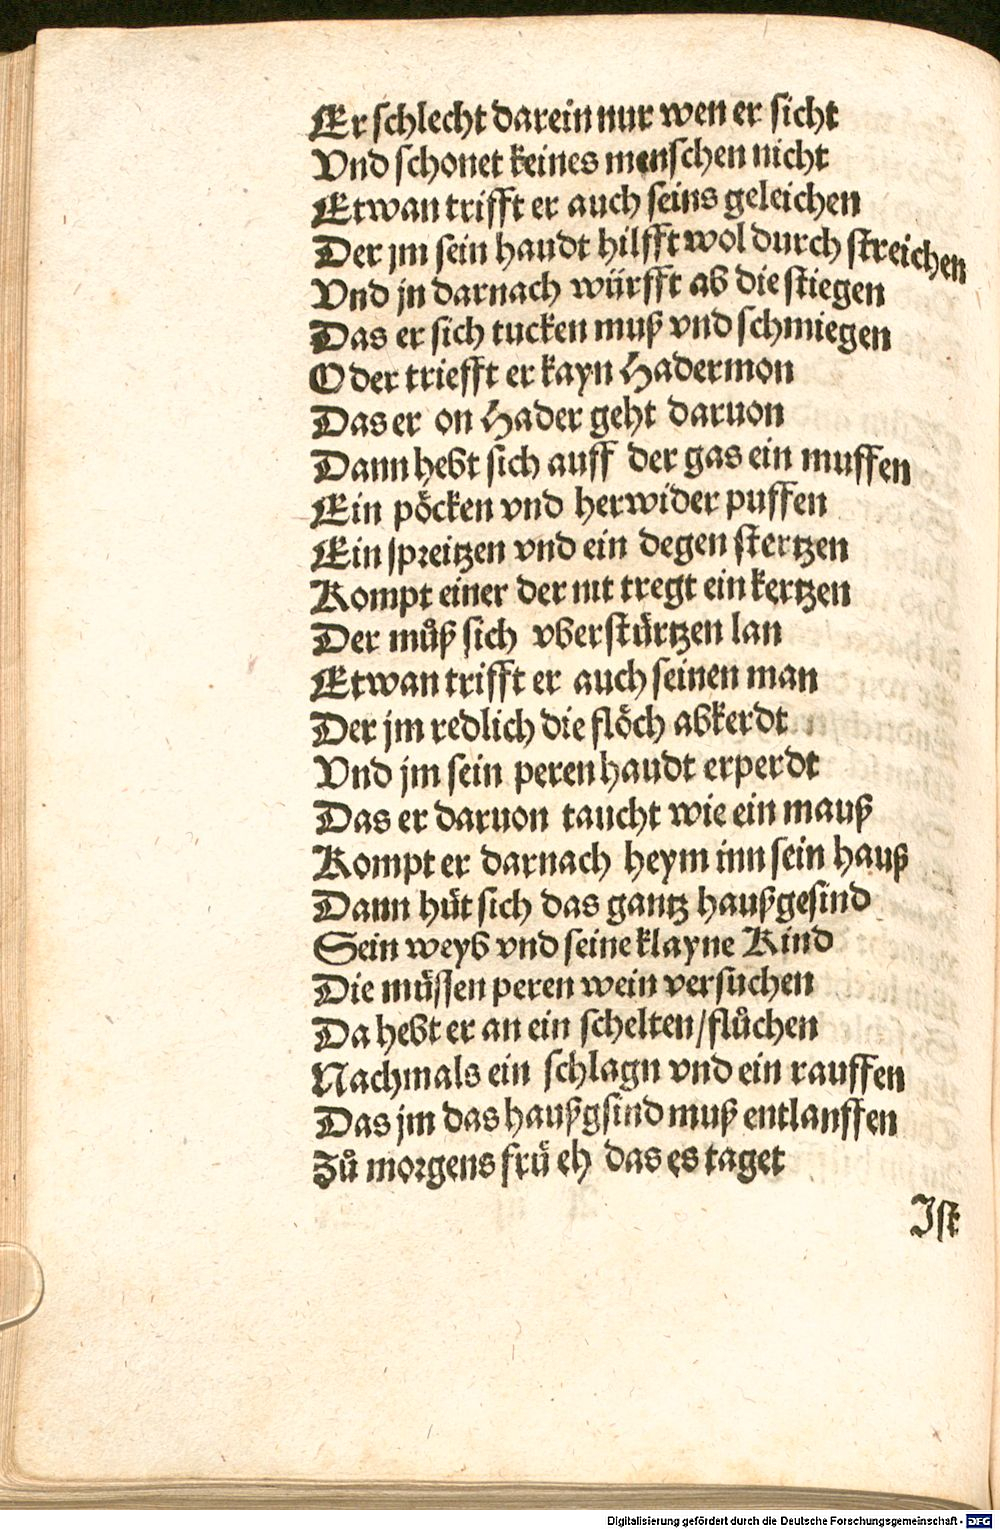 Er schlecht darein nur wen er sicht
Vnd schonet keines menschen nicht
Etwan trifft er auch seins geleichen
Der jm sein haudt hilfft wol durch streichen
Vnd jn darnach würfft ab die stiegen
Das er sich tucken muß vnd schmiegen
Oder triefft er kayn Hadermon
Das er on Hader geht daruon
Dann hebt sich auff der gas ein muffen
Ein pöcken vnd herwider puffen
Ein spreitzen vnd ein degen stertzen
Kompt einer der nit tregt ein kertzen
Der můß sich vberstürtzen lan
Etwan trifft er auch seinen man
Der jm redlich die flöch abkerdt
Vnd jm sein peren haudt erperdt
Das er daruon taucht wie ein mauß
Kompt er darnach heym inn sein hauß
Dann hüt sich das gantz haußgesind
Sein weyb vnd seine klayne Kind
Die müssen peren wein versuchen
Da hebt er an ein schelten/flůchen
Nachmals ein schlagn vnd ein rauffen
Das jm das haußgsind muß entlauffen
Zů morgens frü eh das es taget
Ist
Digitalisierung gefördert durch die Deutsche Forschungsgemeinschaft - DFG